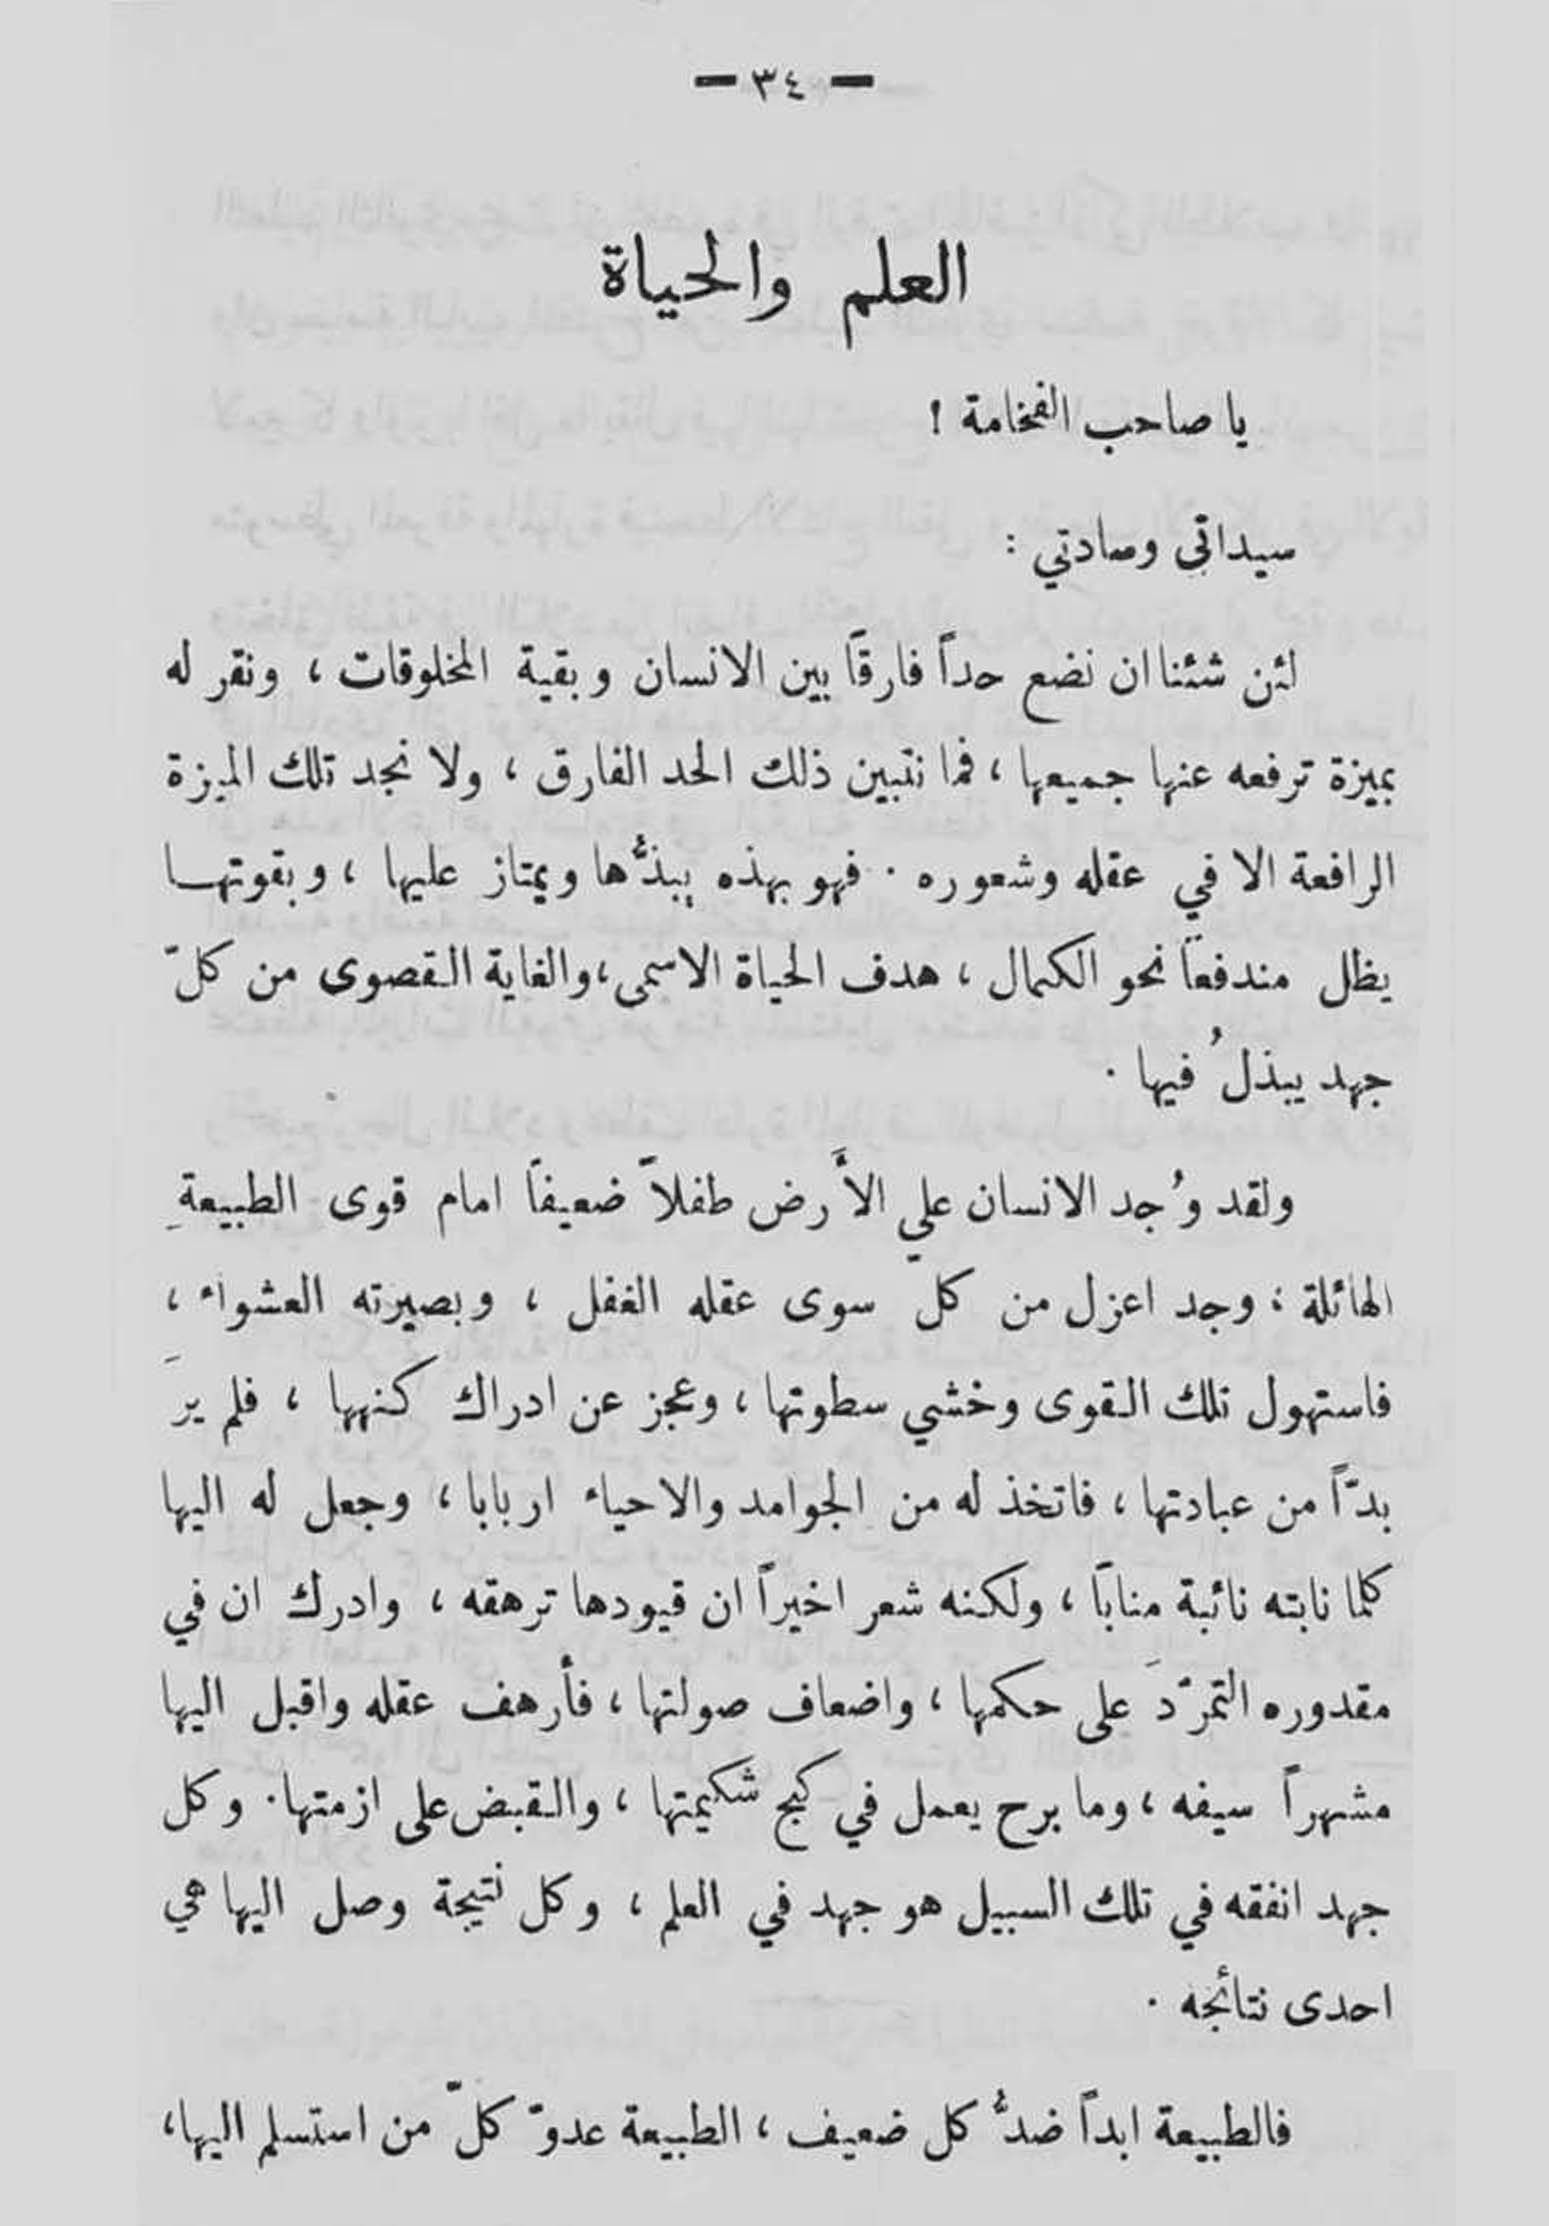 — ٣٤ —
العلم والحياة
يا صاحب الفخامة !
سيداتي وسادتي :
لئن شئنا ان نضع حداً فارقاً بين الانسان وبقية المخلوقات ، ونقر له
بميزة ترفعه عنها جميعها ، فما نتبين ذلك الحد الفارق ، ولا نجد تلك الميزة
الرافعة الا في عقله وشعوره . فهو بهذه يبذُّها ويمتاز عليها ، وبقوتهـا
يظل مندفعاً نحو الكمال ، هدف الحياة الاسمى ، والغاية القصوى من كلّ
جهد يبذلُ فيها .
ولقد وُجد الانسان علي الأَرض طفلاً ضعيفاً امام قوى الطبيعةِ
الهائلة ؛ وجد اعزل من كلّ سوى عقله الغفل ، وبصيرته العشواء ،
فاستهول تلك القوى وخشي سطوتها ، وعجز عن ادراك كنهها ، فلم يرَ
بدّاً من عبادتها ، فاتخذ له من الجوامد والاحياء اربابا ، وجعل له اليها
كلما نابته نائبة مناباً ، ولكنه شعر اخيراً ان قيودها ترهقه ، وادرك ان في
مقدوره التمرّدَ على حكمها ، واضعاف صولتها ، فأرهف عقله واقبل اليها
مشهراً سيفه ، وما برح يعمل في كبح شكيمتها ، والقبض على ازمتها . وكل
جهد انفقه في تلك السبيل هو جهد في العلم ، وكل نتيجة وصل اليها هي
احدى نتائجه .
فالطبيعة ابداً ضدُّ كل ضعيف ، الطبيعة عدوّ كلّ من استسلم اليها ،